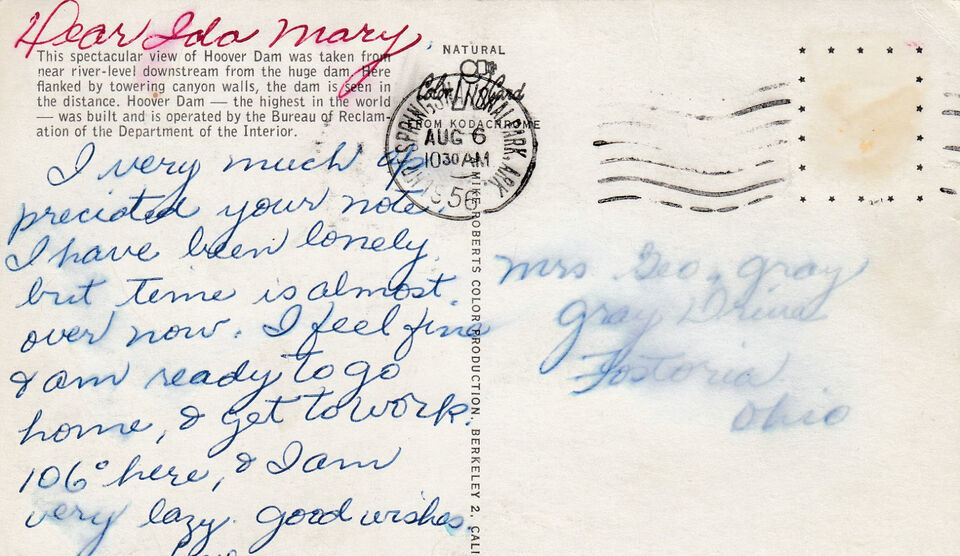 Dear Ida Mary,
This spectacular view of Hoover Dam was taken from
near river-level downstream from the huge dam. Here
flanked by towering canyon walls, the dam is seen in
the distance. Hoover Dam — the highest in the world
— was built and is operated by the Bureau of Reclam-
ation of the Department of the Interior.
I very much ap
preciated your note.
I have been lonely
but time is almost
over now. I feel fine
& am ready to go
home, & get to work.
106° here, & I am
very lazy. Good wishes
NATURAL
Color Card
FROM KODACHROME
NATIONAL PARK, ARK.
AUG 6
10 30 AM
1956
MIKE ROBERTS COLOR PRODUCTION, BERKELEY 2, CALI
Mrs Geo. Gray
Gray Drive
Fostoria
Ohio